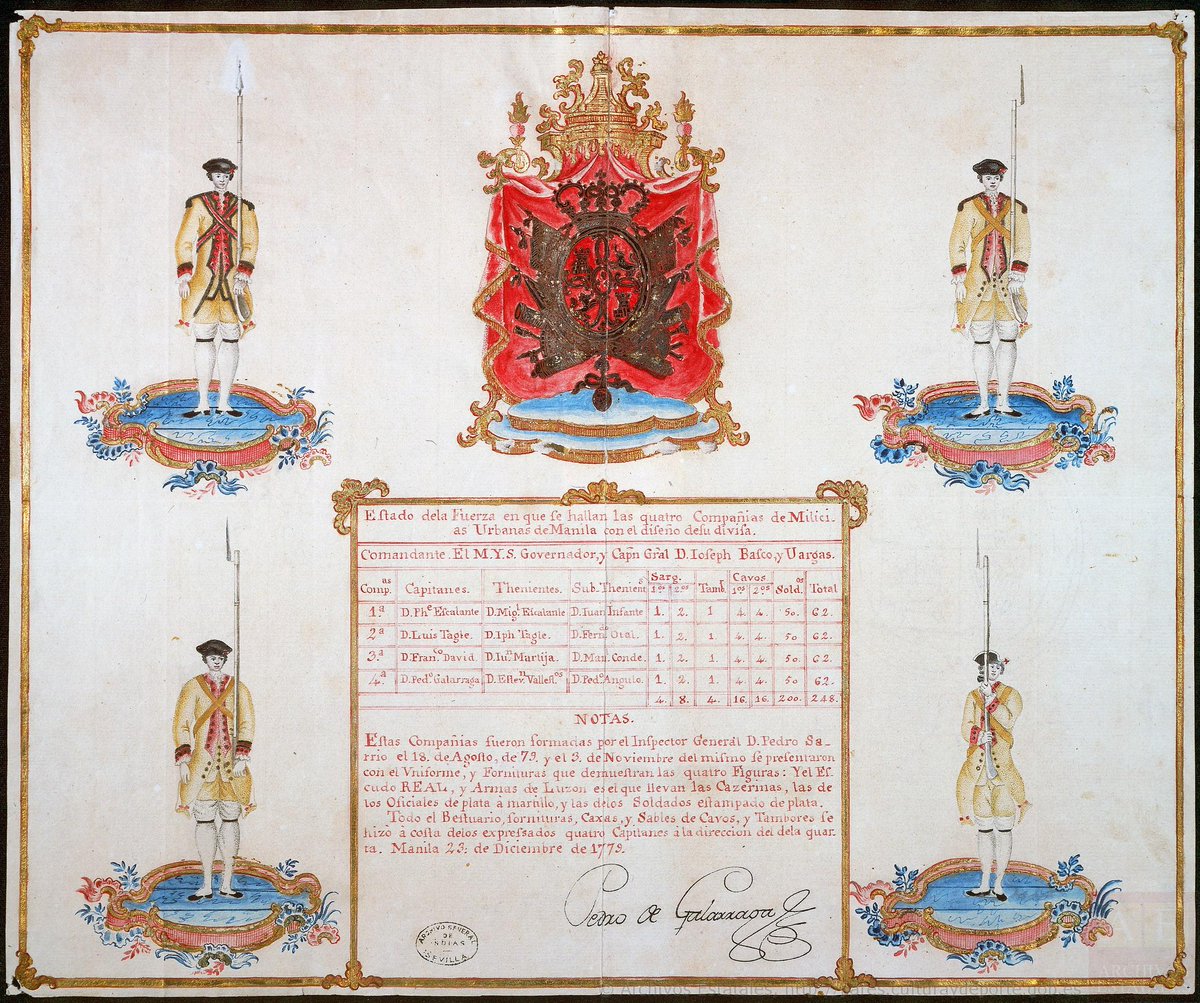 Estado dela Fuerza en que se hallan las quatro Compañias de Milici-
as Urbanas de Manila con el diseño desu divisa.
Comandante. El M.Y.S. Governador, y Capn Gral D. Ioseph Basco, y Vargas.
Comp.as Capitanes. Thenientes. Sub-Thenients Sarg. 1os 2os Tambs Cavos. 1os 2os Sold.os Total
1.a D. Phe Escalante D. Migl Escalante D. Iuan Infante 1. 2. 1 4. 4. 50. 62.
2.a D. Luis Tagle. D. Iph Tagle. D. Ferndo Otal. 1. 2. 1. 4. 4. 50 62.
3.a D. Franco David D. Iun Martija. D. Man. Conde. 1. 2. 1. 4. 4. 50. 62.
4.a D. Pedo Galarraga D. Estevn Vallesos D. Pedo Angulo. 1. 2. 1. 4. 4. 50 62.
4. 8. 4. 16. 16. 200. 248.
NOTAS.
Estas Compañias fueron formadas por el Inspector General D. Pedro Sa-
rrio el 18. de Agosto, de 79. y el 3. de Noviembre del mismo se presentaron
con el Vniforme, y Fornituras que demuestran las quatro Figuras: Y el Es
cudo REAL, y Armas de Luzon es el que llevan las Cazerinas, las de
los Oficiales de plata à martillo, y las delos Soldados estampado de plata.
Todo el Bestuario, fornituras, Caxas, y Sables de Cavos, y Tambores se
hizo à costa delos expressados quatro Capitanes à la direccion del dela quar
ta. Manila 23: de Diciembre de 1779.
Pedro de Galarraga
ARCHIVO GENERAL
DE
INDIAS
SEVILLA
© Archivos Estatales, http://pares.culturaydeporte.gob.es